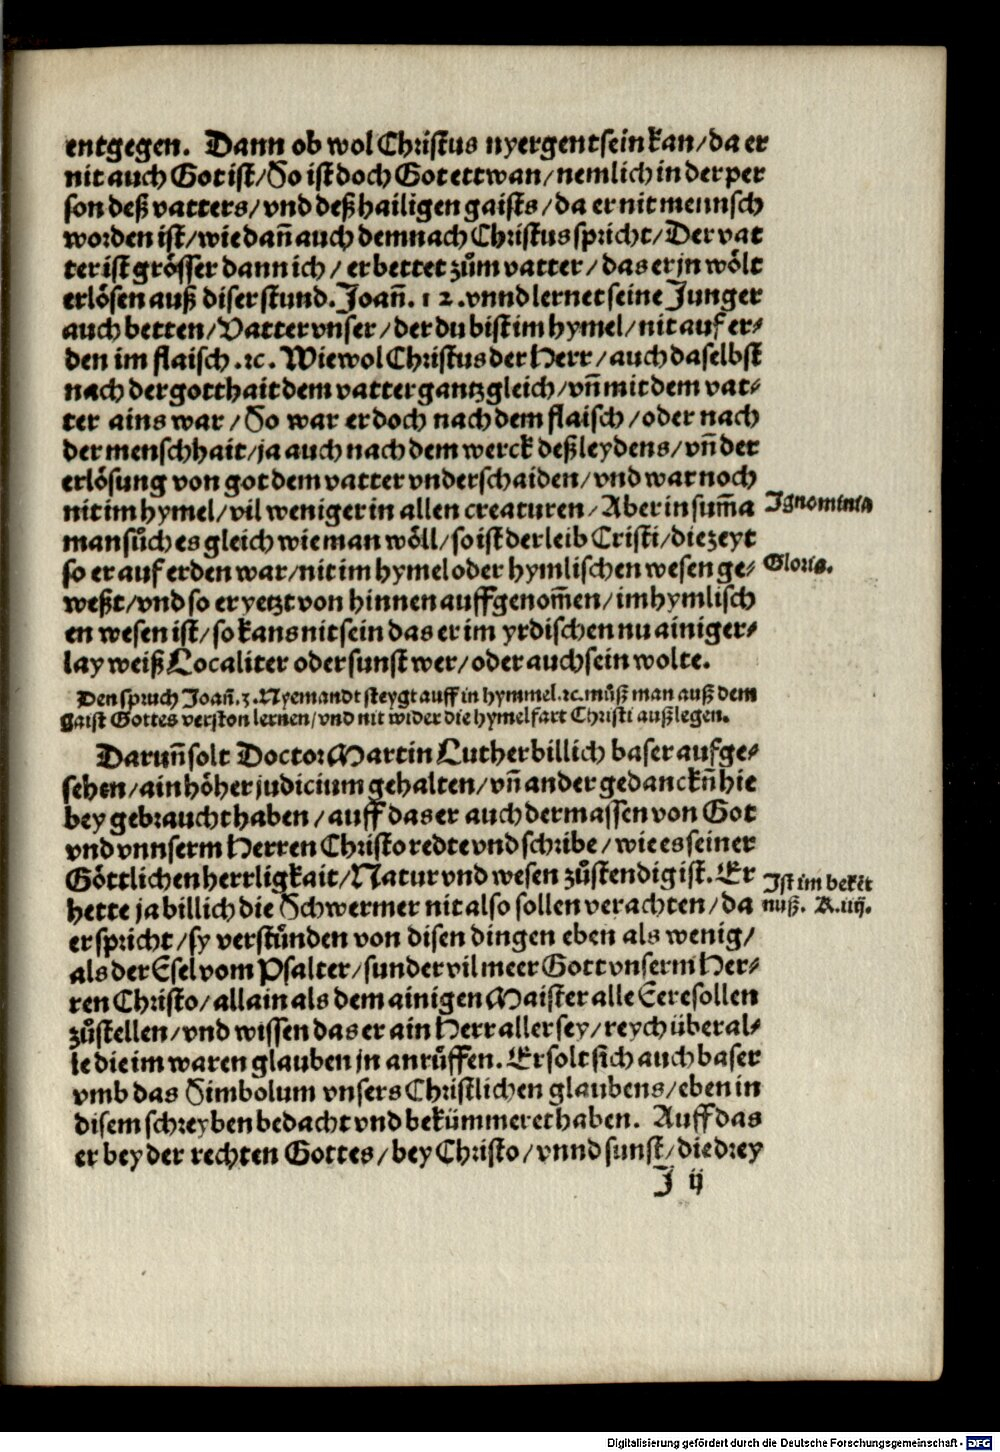 entgegen. Dann ob wol Christus nyergent sein kan/ da er
nit auch Got ist/ So ist doch Got ettwan/ nemlich in der per
son deß vatters/ vnd deß hailigen gaists/ da er nit mennsch
worden ist/ wie dañ auch demnach Christus spricht/ Der vat
ter ist grösser dann ich/ er bettet zům vatter/ das er jn wölt
erlösen auß diser stund. Joañ. 12. vnnd lernet seine Junger
auch betten/ Vatter vnser/ der du bist im hymel/ nit auf er⸗
den im flaisch .ꝛc. Wiewol Christus der Herr/ auch daselbst
nach der gotthait dem vatter gantz gleich/ vñ mit dem vat⸗
ter ains war/ So war er doch nach dem flaisch/ oder nach
der menschhait/ ja auch nach dem werck deß leydens/ vñ der
erlösung von got dem vatter vnderschaiden/ vnd war noch
nit im hymel/ vil weniger in allen creaturen/ Aber in sum̃a
Ignominia
man sůch es gleich wie man wöll/ so ist der leib Cristi/ die zeyt
so er auf erden war/ nit im hymel oder hymlischen wesen ge⸗
Gloria.
weßt/ vnd so er yetzt von hinnen auffgenom̃en/ im hymlisch
en wesen ist/ so kans nit sein das er im yrdischen nu ainiger⸗
lay weiß Localiter oder sunst wer/ oder auch sein wolte.
Den spruch Joañ. 3. Nyemandt steygt auff in hymmel .ꝛc. můß man auß dem
gaist Gottes verston lernen/ vnd nit wider die hymelfart Christi außlegen.
Daruñ solt Doctor Martin Luther billich baser aufge⸗
sehen/ ain höher judicium gehalten/ vñ ander gedanckñ hie
bey gebraucht haben/ auff das er auch dermassen von Got
vnd vnnserm Herren Christo redte vnd schribe/ wie es seiner
Göttlichen herrligkait/ Natur vnd wesen zůstendig ist. Er
Ist im bekēt
hette ja billich die Schwermer nit also sollen verachten/ da
nuß. A.iiij.
er spricht/ sy verstůnden von disen dingen eben als wenig/
als der Esel vom Psalter/ sunder vil meer Gott vnserm Her⸗
ren Christo/ allain als dem ainigen Maister alle Eere sollen
zůstellen/ vnd wissen das er ain Herr aller sey/ reych über al⸗
le die im waren glauben jn anrůffen. Er solt sich auch baser
vmb das Simbolum vnsers Christlichen glaubens/ eben in
disem schreyben bedacht vnd bekümmeret haben. Auff das
er bey der rechten Gottes/ bey Christo/ vnnd sunst/ die drey
J ij
Digitalisierung gefördert durch die Deutsche Forschungsgemeinschaft - DFG